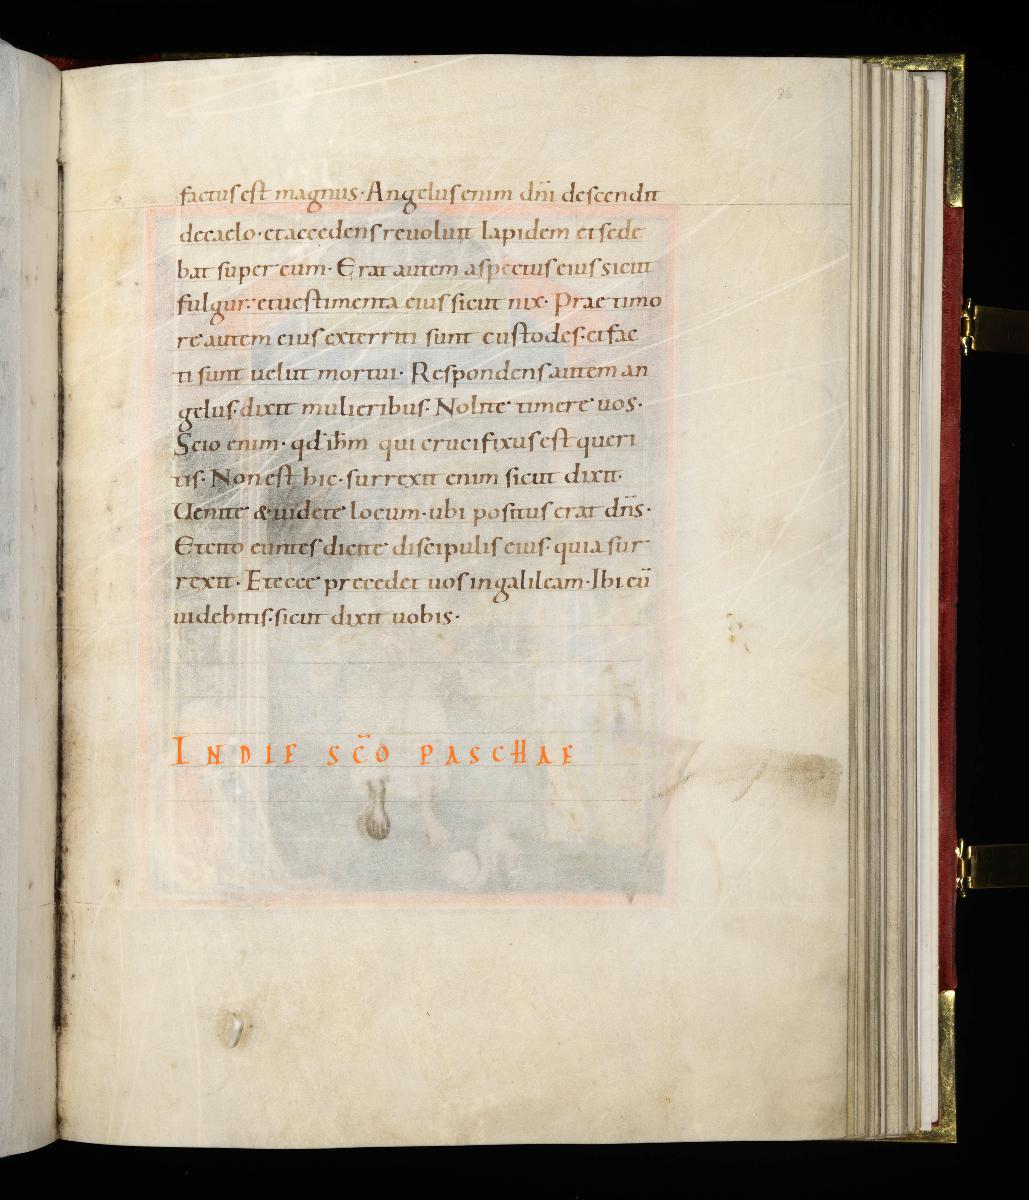 36
factus est magnus· Angelus enim dn̄i descendit
de caelo· et accedens reuoluit lapidem et sede
bat super eum· Erat autem aspectus eius sicut
fulgur· et uestimenta eius sicut nix· Prae timo
re autem eius exterriti sunt custodes· et fac
ti sunt uelut mortui· Respondens autem an
gelus· dixit mulieribus· Nolite timere uos·
Scio enim· qd ih̄m qui crucifixus est queri
tis· Non est hic· surrexit enim sicut dixit·
Uenite & uidete locum· ubi positus erat dn̄s·
Et cito euntes dicite discipulis eius· quia sur
rexit· Et ecce precedet uos in galileam· Ibi eū
uidebitis· sicut dixit uobis·
IN DIE SC̄O PASCHAE